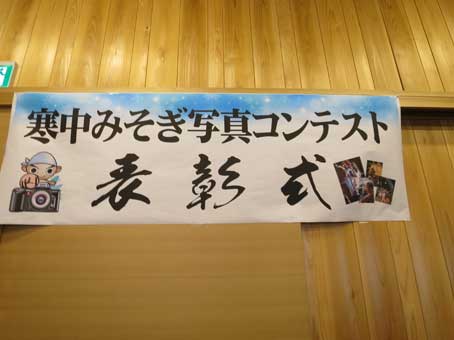 寒中みそぎ写真コンテスト
表彰式